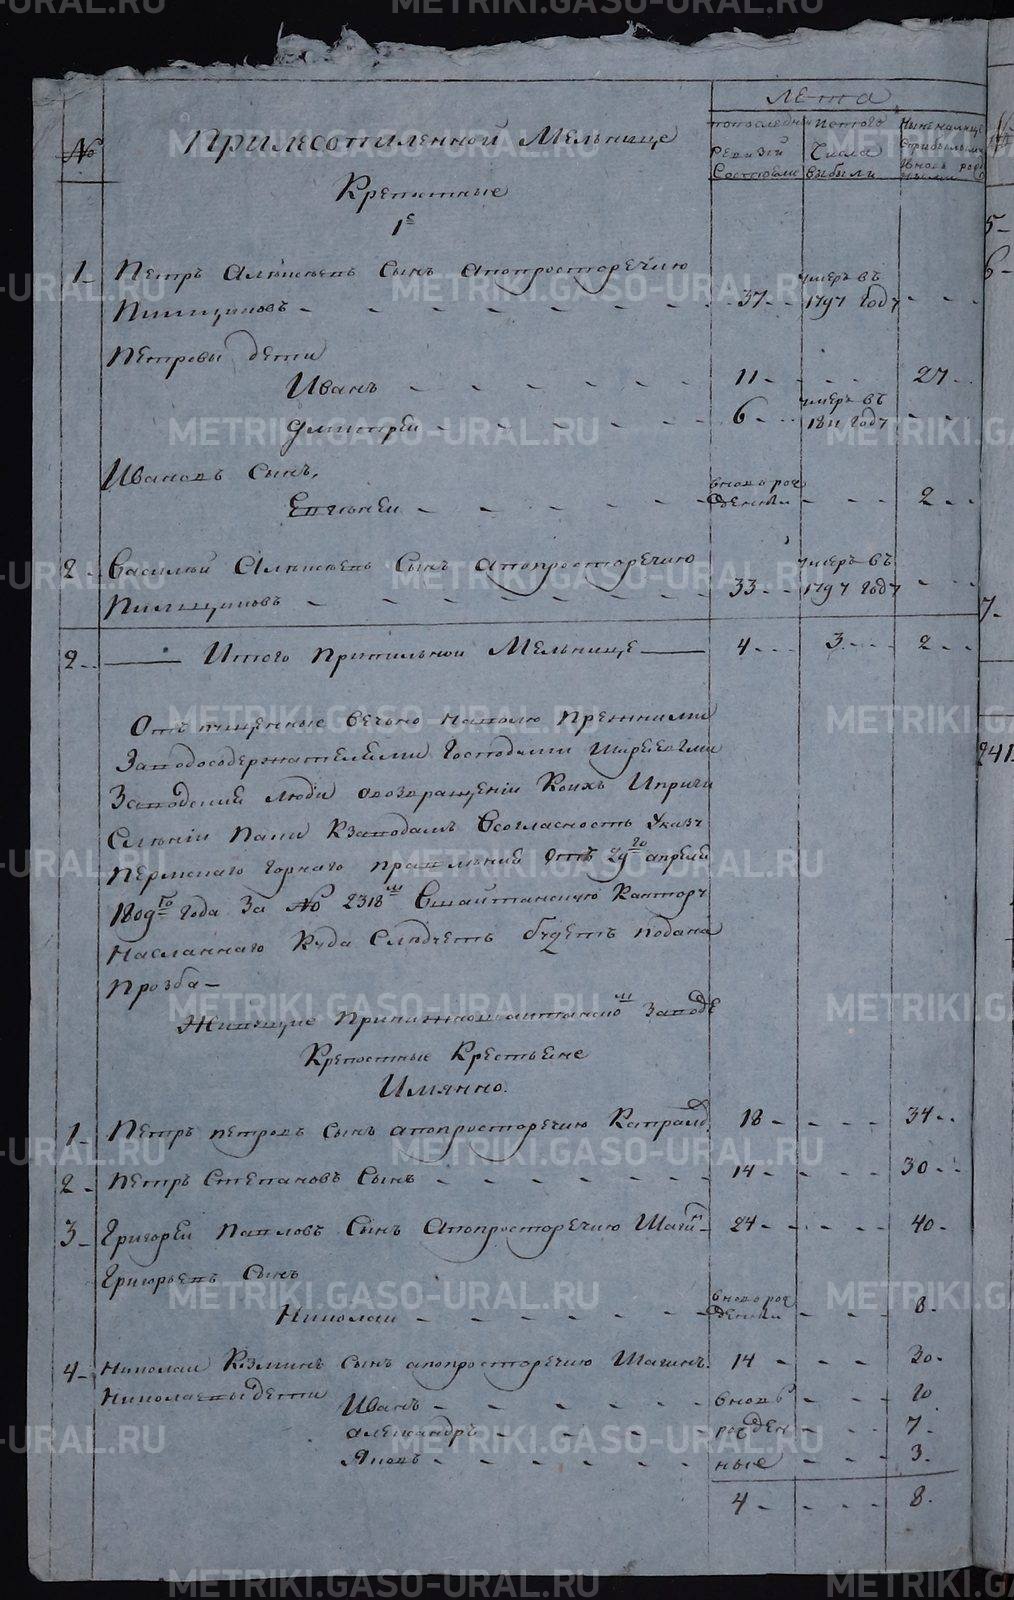 METRIKI.GASO-URAL.RU
лета
№
Прилесопиленной Мельнице
по последней ревизии состояли
из того числа выбыли
Крепостные
1е
1
Петръ Алексеевъ Сынъ апопросторечию
Пильщиковъ
37
умеръ въ 1797 году
Петровы дети
Иванъ
11
27
Дмитреи
6
умеръ въ 1811 году
Ивановъ Сынъ,
Евгеней
вновь рожденныи
2
2
Василей Алексеевъ Сынъ апопросторечию
Пильщиковъ
33
умеръ въ 1797 году
2
Итого Припильной Мельнице
4
3
2
Отпущенные вечьно наволю прежними
Заводосодержателями Господами Ширяевыми
Заводские люди овозвращении Коихъ Ипричи
Слении Паки Кзаводамъ Всогласность Указу
Пермскаго Горнаго правления Отъ 29го апреля
1809го года За № 2318м Вшайтанскую Кантору
Насланнаго Куда Следуетъ будетъ подана
прозба
Живущие Принижнешайтанскомъ Заводе
Крепостные Крестьяне
Имянно.
1
Петръ петровъ Сынъ апопросторечию
18
34
2
Петръ Степановъ Сынъ
14
30
3
Григореи Павловъ Сынъ Апопросторечию
24
40
Григорьевъ Сынъ
Николаи
вновь рожденныи
8
4
Николаи Кузминъ Сынъ апопросторечию Шагинъ
14
30
Николаевы дети
Иванъ
вновь
10
александръ
рожден
7
Яковъ
ные
3
4
8